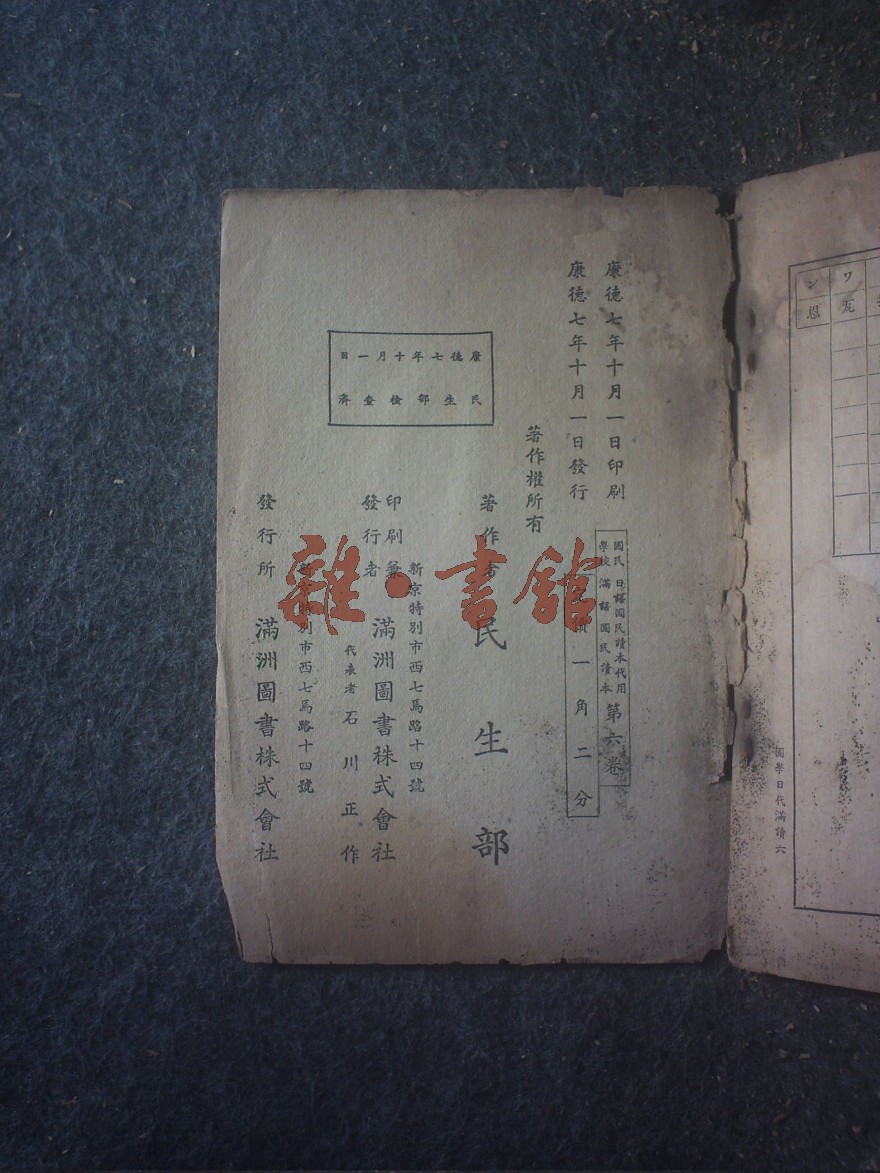 康德七年十月一日印刷
康德七年十月一日發行
國民學校
日語國民讀本代用
滿語國民讀本
第六卷
一角二分
著作權所有
康德七年十月一日
民生部檢查濟
著作
民生部
印刷兼發行者
新京特別市西七馬路十四號
滿洲圖書株式會社
代表者 石川正作
發行所
新京特別市西七馬路十四號
滿洲圖書株式會社
雜·書館
ワ
ン
瓦
恩
國學日代滿讀六